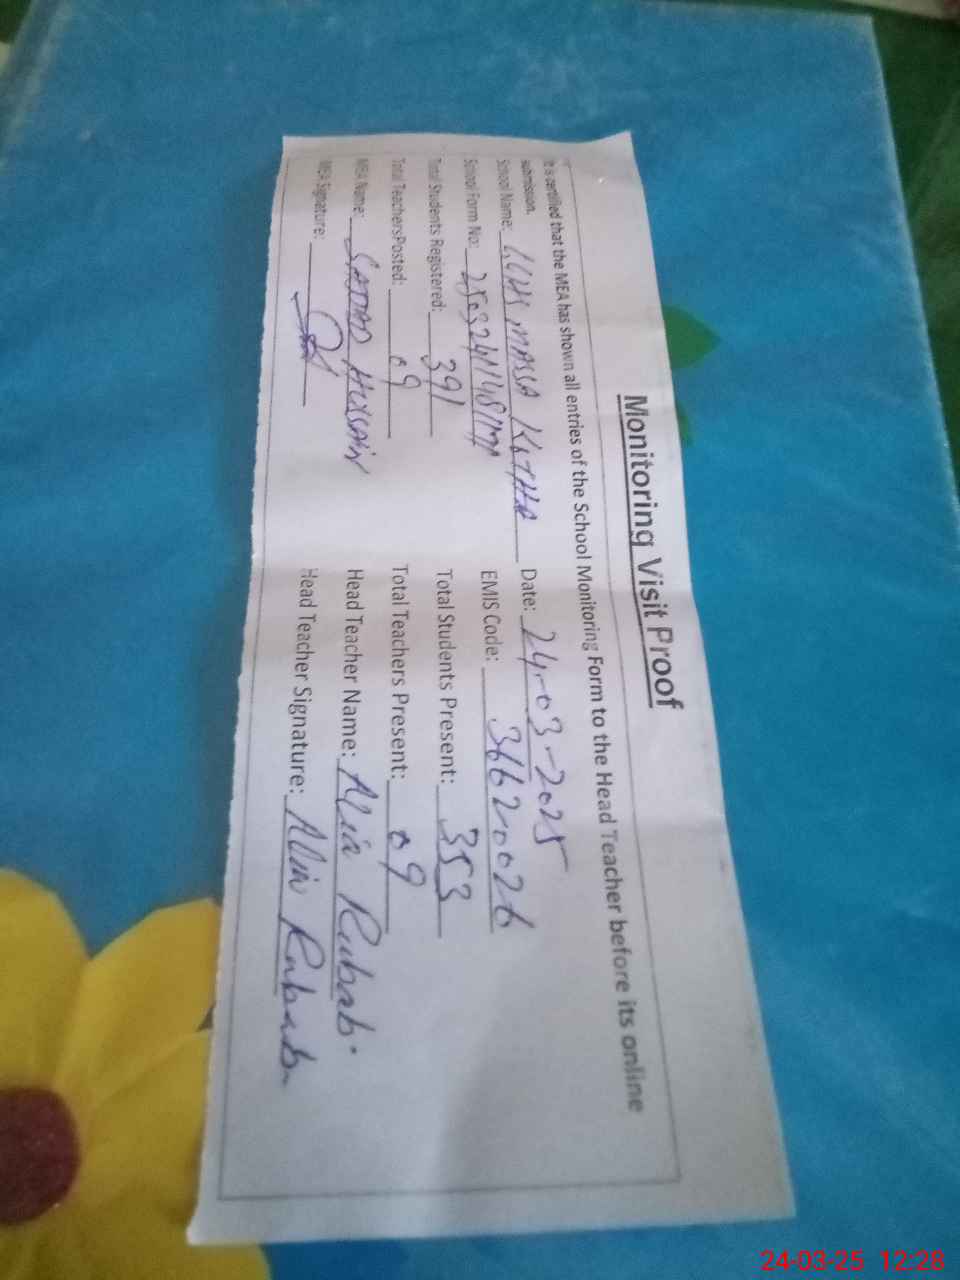 Monitoring Visit Proof
It is certified that the MEA has shown all entries of the School Monitoring Form to the Head Teacher before its online
submission.
School Name: MASSA KOTHA Date: 24-03-2025
School Form No: EMIS Code: 36620026
Total Students Registered: 391 Total Students Present: 353
Total TeachersPosted: 09 Total Teachers Present: 09
MEA Name: SAJJAD HUSSAIN Head Teacher Name: Alia Rubab.
MEA Signature: Head Teacher Signature: Alia Rubab
24-03-25 12:28